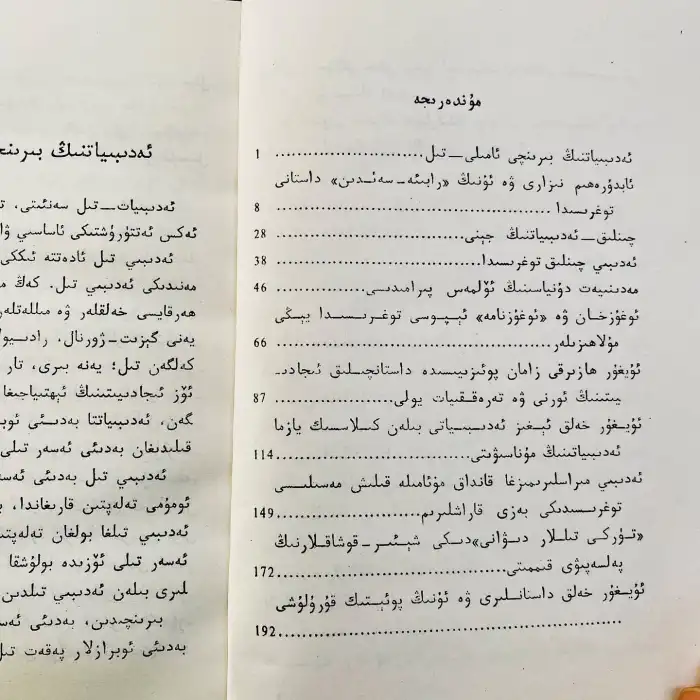 مۇندەرىجە
ئەدىبىياتنىڭ بىرىنچى ئامىلى — تىل ........................ 1
ئابدۇرەھىم نىزارى ۋە ئۇنىڭ «رابىئە - سەئىدىن» داستانى
توغرىسىدا ........................ 8
چىنلىق — ئەدىبىياتنىڭ جېنى ........................ 28
ئەدىبىي چىنلىق توغرىسىدا ........................ 38
مەدىنىيەت دۇنياسىنىڭ ئۆلمەس پىرامىدىسى ........................ 46
ئوغۇزخان ۋە «ئوغۇزنامە» ئېپوسى توغرىسىدا يېڭى
مۇلاھىزىلەر ........................ 66
ئۇيغۇر ھازىرقى زامان پوئىزىيىسىدە داستانچىلىق ئىجادى-
يىتىنىڭ ئورنى ۋە تەرەققىيات يولى ........................ 87
ئۇيغۇر خەلق ئېغىز ئەدىبىياتى بىلەن كىلاسسىك يازما
ئەدىبىياتنىڭ مۇناسىۋىتى ........................ 114
ئەدىبىي مىراسلىرىمىزغا قانداق مۇئامىلە قىلىش مەسىلىسى
توغرىسىدىكى بەزى قاراشلىرىم ........................ 149
«تۈركى تىللار دىۋانى»دىكى شېئىر - قوشاقلارنىڭ
پەلسەپىۋى قىممىتى ........................ 172
ئۇيغۇر خەلق داستانلىرى ۋە ئۇنىڭ پوئېتىك قۇرۇلۇشى
........................ 192
ئەدىبىياتنىڭ بىرىنچى
ئەدىبىيات — تىل سەنئىتى،
ئەكس ئەتتۈرۈشتىكى ئاساسىي
ئەدىبىي تىل ئادەتتە ئىككى
مەنىدىكى ئەدىبىي تىل. كەڭ
ھەرقايسى خەلقلەر ۋە مىللەتلەر
يەنى گېزىت - ژورنال، رادىيو
كەلگەن تىل؛ يەنە بىرى، تار
ئۆز ئىجادىيىتىنىڭ ئېھتىياجىغا
گەن، ئەدىبىياتتا بەدىئى
قىلىدىغان بەدىئى ئەسەر تىلى
ئەدىبىي تىل بەدىئى
ئومۇمى تەلەپتىن قارىغاندا،
ئەدىبىي تىلغا بولغان
ئەسەر تىلى ئۆزىدە بولۇشقا
لىرى بىلەن ئەدىبىي تىلدىن
بىرىنچىدىن، بەدىئى
بەدىئى ئوبرازلار پەقەت